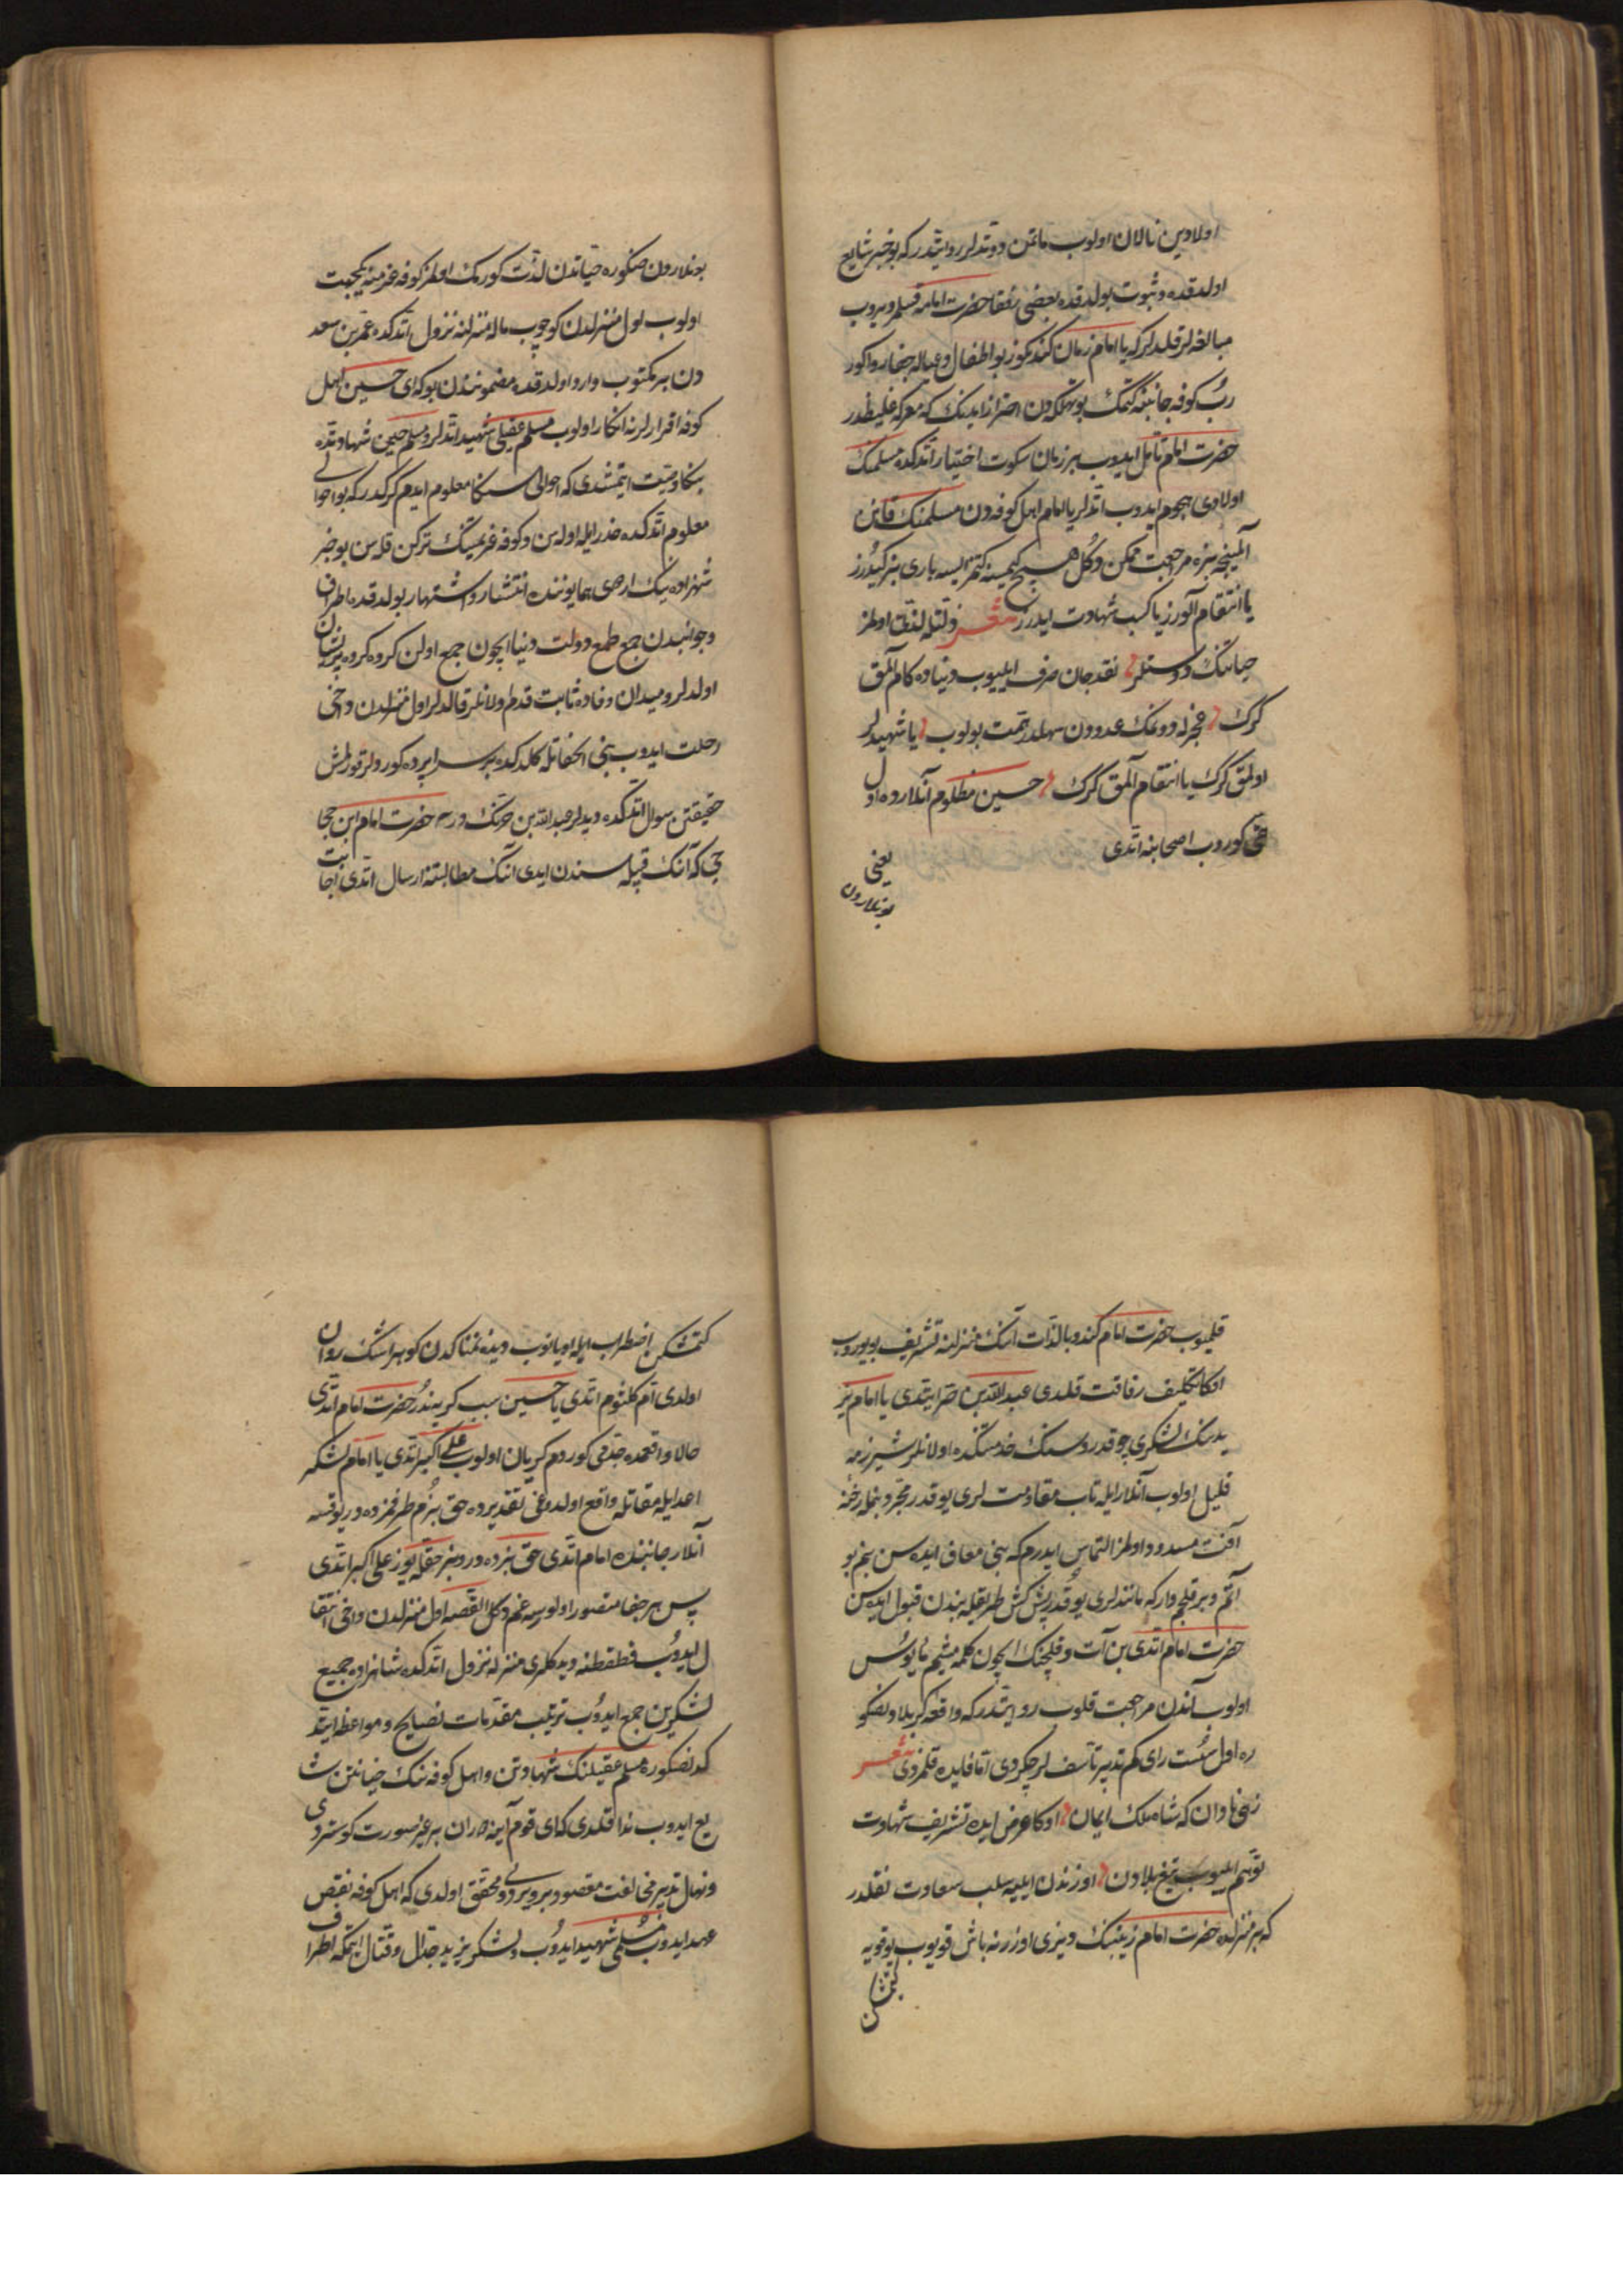 اولادین نالان اولوب ماتمن دوتدلر روایتدر که بو خبر شایع
اولدقده و ثبوت بولدقده بعضی رفقا حضرت امامه قسم ویروب
مبالغه لر قلدلر که یا امام زمان کندکوز بو اطفال و عیاله جفا روا کور
رب کوفه جانبنه کتمک بو تهلکه دن احتراز ایدینک که معرکه غلیظدر
حضرت امام تامل ایدوب بر زمان سکوت اختیار اتدکده مسلمنک
اولادی هجوم ایدوب اتدلر یا امام اهل کوفه دن مسلمنک قانن
آلمینجه بزه مراجعت ممکن دکل هیچ کیمسه کتمز ایسه باری بز کیدرز
یا انتقام آلورز یا کسب شهادت ایدرز شعر ذلتله لذتی اولمز
حیاتنک دوستلر نقد جان صرف ایلیوب دنیاده کام آلمق
کرک عجزله دونمک عدودن سهلدر تهمت بولوب یا شهید لر
اولمق کرک یا انتقام آلمق کرک حسین مظلوم آنلارده اول
کوروب اصحابنه اتدی
یعنی
بونلاردن
بونلاردن صنکوره حیاتدن لذت کورمک اولمز کوفه عزمنه یکجهت
اولوب اول منزلدن کوچوب ماله منزلنه نزول اتدکده عمر بن سعد
دن بر مکتوب وارد اولدقده مضموننده بو که ای حسین اهل
کوفه اقرارلرنه انکار اولوب مسلم عقیلی شهید اتدلر و مسلم حین شهادتده
بنکا وصیت ایتمشدی که احوالی سنکا معلوم ایدم کرکدر که بو احوالی
معلوم اتدکده حذر ایله اوله سن و کوفه عزیمتینک ترکن قله سن بو خبر
شهزاده نینک اردوی همایوننده انتشار و اشتهار بولدقده اطراف
و جوانبدن جمع طمع دولت دنیا ایچون جمع اولن کروه کروه پریشان
اولدلر و میدان وفاده ثابت قدم اولانلر قالدلر اول منزلدن دخی
رحلت ایدوب بنی الحفاتله کلدکده بر سراپرده کوردلر قورلمش
حقیقتن سوال اتدکده دیدلر عبدالله بن حرنک در حضرت امام ابن حجا
جی که آننک قبیله سندن ایدی اننک مطالبتنه ارسال اتدی اجابت
قلمیوب حضرت امام کندو بالذات آننک منزلنه تشریف بیوروب
انکا تکلیف رفاقت قلدی عبدالله بن حر ایتدی یا امام یز
یدینک لشکری چوقدر و سنک خدمتکده اولانلر شیر زمه
قلیل اولوب آنلار ایله تاب مقاومت لری یوقدر مجرد بنمله رخنهٔ
آفت مسدود اولمز التماس ایدرم که بنی معاف ایده سن بنم بو
آتم و بر قلجم وار که مانندلری یوقدر پیش کش طریقله بندن قبول ایله سن
حضرت امام اتدی بن آت و قلچنک ایچون کلمه مشم مایوس
اولوب آندن مراجعت قلوب روایتدر که واقعه کربلادن صنکو
ره اول سست رای کم تدبیر تاسف لر چکردی اما فایده قلمزدی شعر
زهی نادان که شاه ملک ایمان اوکا عرض ایده تشریف شهادت
توهم ایلیوب تیغ بلادن اوزندن ایلیه سلب سعادت نقلدر
که بر منزلده حضرت امام زینبنک دیزی اوزرنه باش قویوب یوقویه
کتمشکن
کتمشکن اضطراب ایله اویانوب دیده نمناکدن کوهر اشک روان
اولدی ام کلثوم اتدی یا حسین سبب کریه ندر حضرت امام اتدی
حالا واقعه ده جدمی کوردم کریان اولوب علی اکبر اتدی یا امام لشکر
اعدا ایله مقاتله واقع اولدوغی تقدیرده حق بزم طرفمزده در یوقسه
آنلار جانبنده امام اتدی حق بزده در و بز حقله یوز علی اکبر اتدی
پس هر جفا متصور اولورسه غم دکل القصه اول منزلدن داخی انتقا
ل ایدوب قطقطنه دیدکلری منزله نزول اتدکده شاهزاده جمیع
لشکرین جمع ایدوب ترتیب مقدمات نصایح و مواعظ ایتد
کدنصکوره مسلم عقیلنک شهادتن و اهل کوفه ننک خیانتن شا
یع ایدوب ندا قلدی که ای قوم آینه دوران بر غیر صورت کوستردی
و نهال تدبیر مخالفت مقصود بر ویردی و محقق اولدی که اهل کوفه نقض
عهد ایدوب مسلمی شهید ایدوب و لشکر یزید جدال و قتال ایتمکه اطراف